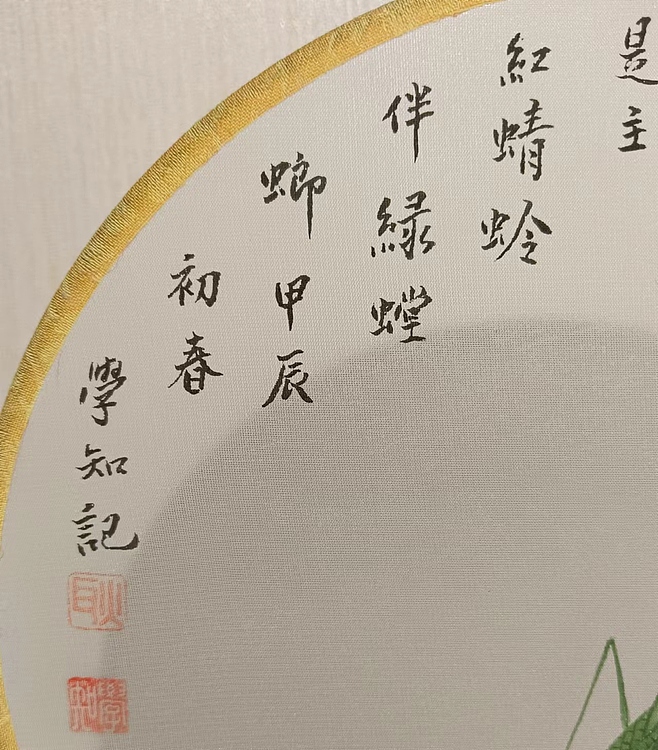 是主
紅蜻蛉
伴綠螳
螂甲辰
初春
學知記
耿
學知